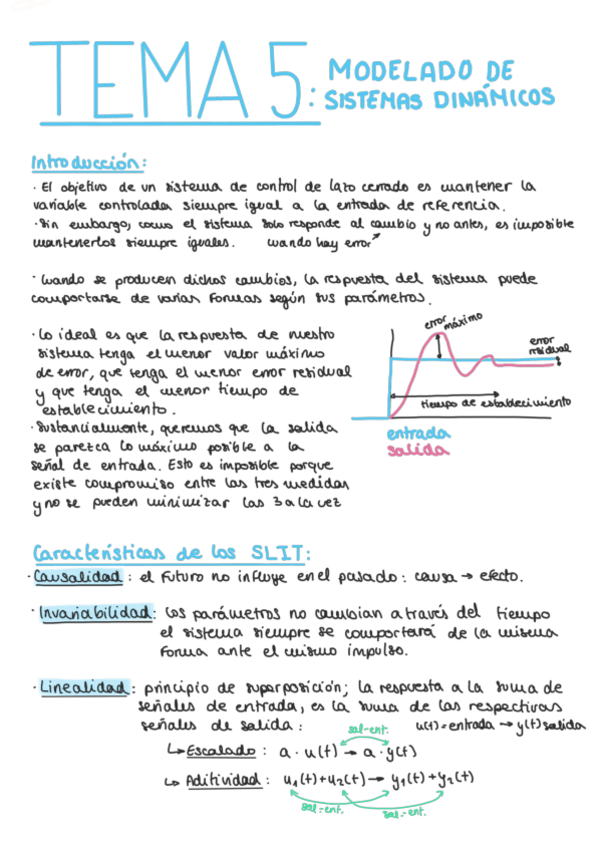 TEMA 5: MODELADO DE
SISTEMAS DINÁMICOS
Introducción:
· El objetivo de un sistema de control de lazo cerrado es mantener la
variable controlada siempre igual a la entrada de referencia.
· Sin embargo, como el sistema solo responde al cambio y no antes, es imposible
mantenerlos siempre iguales. cuando hay error
· Cuando se producen dichos cambios, la respuesta del sistema puede
comportarse de varias formas según sus parámetros.
· Lo ideal es que la respuesta de nuestro
sistema tenga el menor valor máximo
de error, que tenga el menor error residual
y que tenga el menor tiempo de
establecimiento.
· Sustancialmente, queremos que la salida
se parezca lo máximo posible a la
señal de entrada. Esto es imposible porque
existe compromiso entre las tres medidas
y no se pueden minimizar las 3 a la vez
error máximo
error
residual
tiempo de establecimiento
entrada
salida
Características de los SLIT:
· Causalidad: el futuro no influye en el pasado: causa → efecto.
· Invariabilidad: los parámetros no cambian a través del tiempo
el sistema siempre se comportará de la misma
forma ante el mismo impulso.
· Linealidad: principio de superposición; la respuesta a la suma de
señales de entrada, es la suma de las respectivas
señales de salida: u(t)=entrada → y(t) salida
sal-ent.
↳ Escalado: a · u(t) → a · y(t)
↳ Aditividad: u₁(t)+u₂(t) → y₁(t)+y₂(t)
sal-ent. sal-ent.